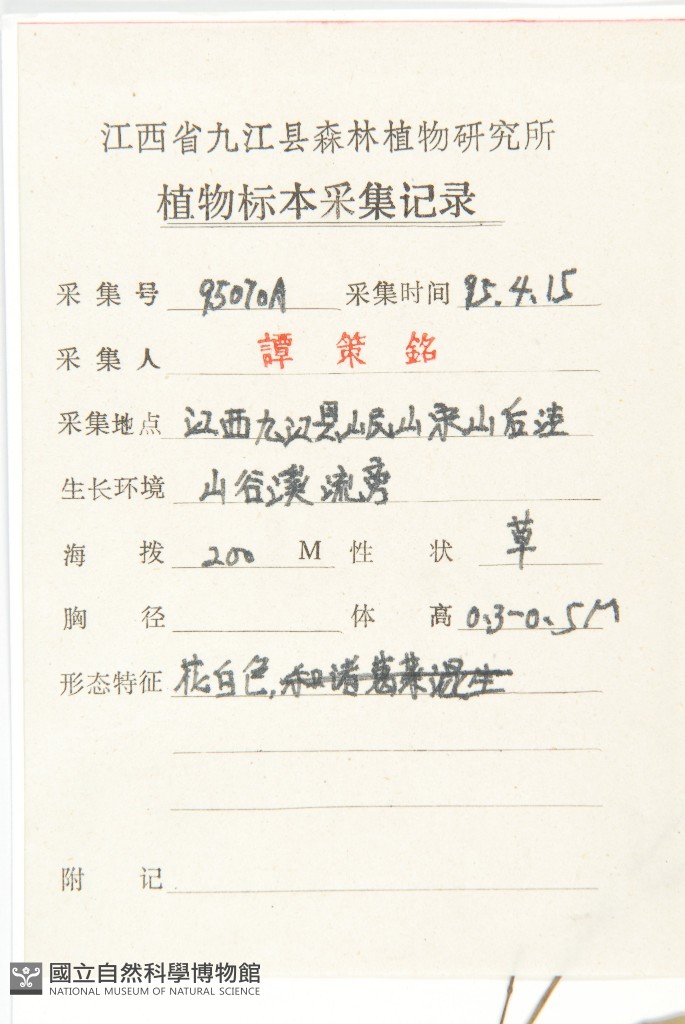 江西省九江县森林植物研究所
植物标本采集记录
采集号 95070A 采集时间 95.4.15
采集人 譚策銘
采集地点 江西九江县岷山朱山后洼
生长环境 山谷溪流旁
海拨 200 M 性状 草
胸径 体高 0.3-0.5M
形态特征 花白色,和诸葛菜混生
附记
國立自然科學博物館
NATIONAL MUSEUM OF NATURAL SCIENCE